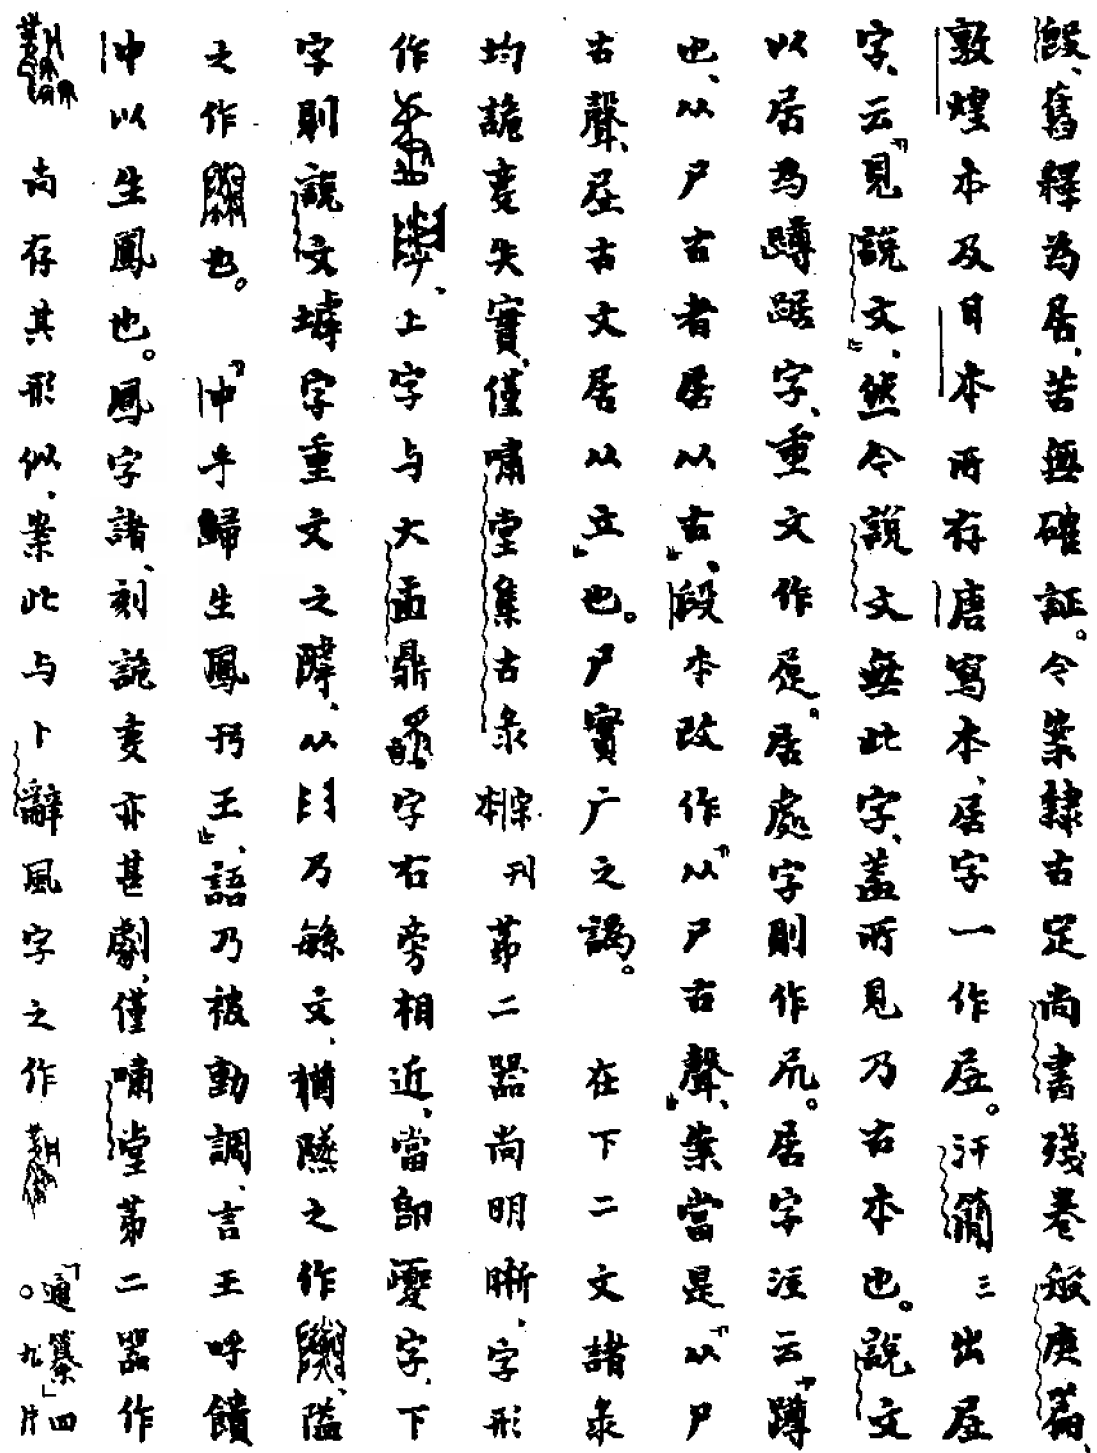 𣪘、舊釋為居、苦無確証。今案隸古定尚書殘卷般庚篇、
敦煌本及日本所存唐寫本、居字一作㞐。汗簡三出㞐
字、云「見說文」、然今說文無此字、蓋所見乃古本也。說文
以居為蹲踞字、重文作𨂂。居處字則作凥。居字注云「蹲
也、从尸古者居从古」、段本改作「从尸古聲」、案當是「从尸
古聲、㞐古文居从立」也。尸實广之譌。 在下二文諸彔
均詭変失實、僅嘯堂集古彔宋刊本第二器尚明晰、字形
作 、上字与大盂鼎 字右旁相近、當即䙴字、下
字則說文𨻰字重文之 、从 乃緐文、猶隧之作 、隘
之作 也。 「冲乎歸生鳳 王」、語乃被動調、言王呼饋
冲以生鳳也。鳳字諸刻詭変亦甚劇、僅嘯堂第二器作
 尚存其形似、案此与卜辭風字之作 「通纂」四九片。